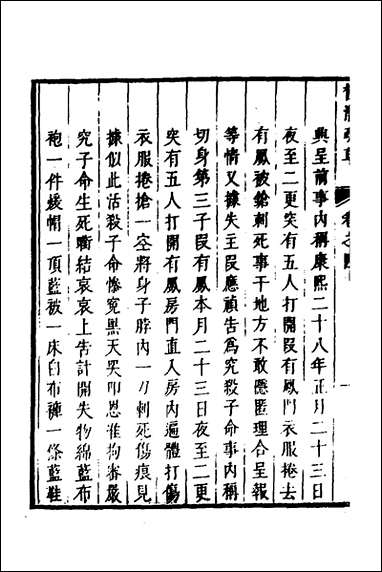 興呈前事內稱康熙二十八年正月二十三日
夜至二更突有五人打開段有鳳門衣服捲去
有鳳被鎗刺死事干地方不敢隱匿理合呈報
等情又據失主段應禎告爲究殺子命事內稱
切身第三子段有鳳本月二十三日夜至二更
突有五人打開有鳳房門直入房內遍體打傷
衣服捲搶一空將身子脖內一刀刺死傷痕見
據似此活殺子命慘寃黑天哭叩恩准拘審嚴
究子命生死啣結哀哀上告計開失物綿藍布
袍一件煖帽一頂藍被一床白布褲一條藍鞋